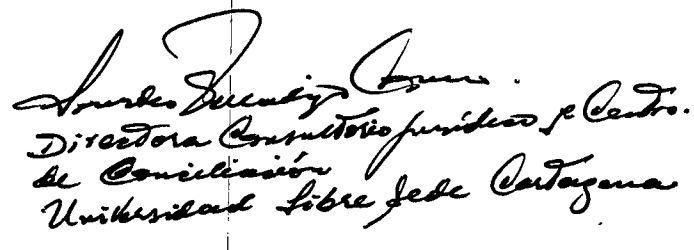 Lourdes
Directora Consultorio Jurídico y Centro.
de Conciliación
Universidad Libre Sede Cartagena